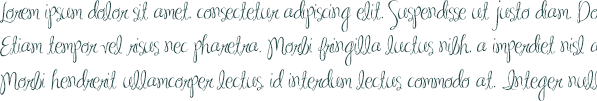 Lorem ipsum dolor sit amet, consectetur adipiscing elit. Suspendisse ut justo diam. Do
Etiam tempor vel risus nec pharetra. Morbi fringilla luctus nibh, a imperdiet nisl a
Morbi hendrerit ullamcorper lectus, id interdum lectus commodo at. Integer null